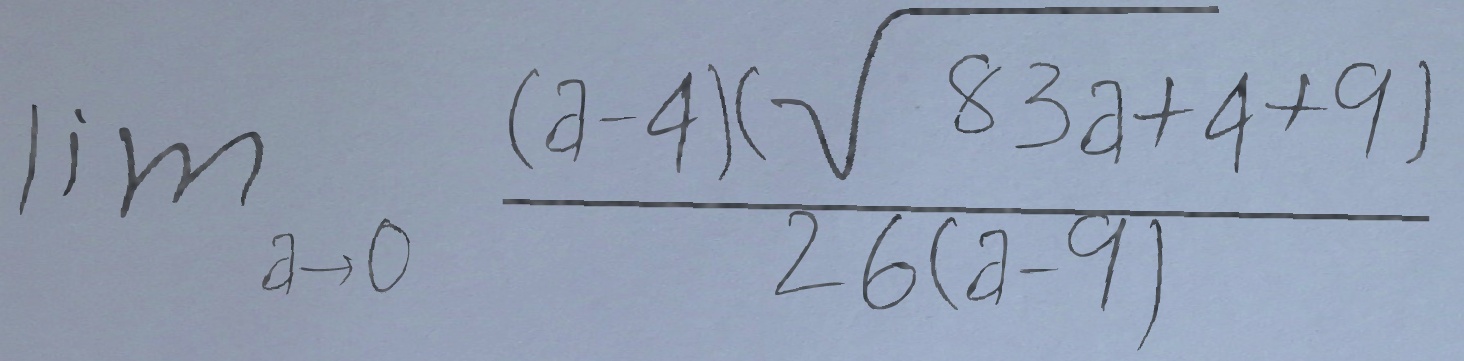 \lim_{a \to 0} \frac{(a-4)(\sqrt{83a+4}+9)}{26(a-9)}